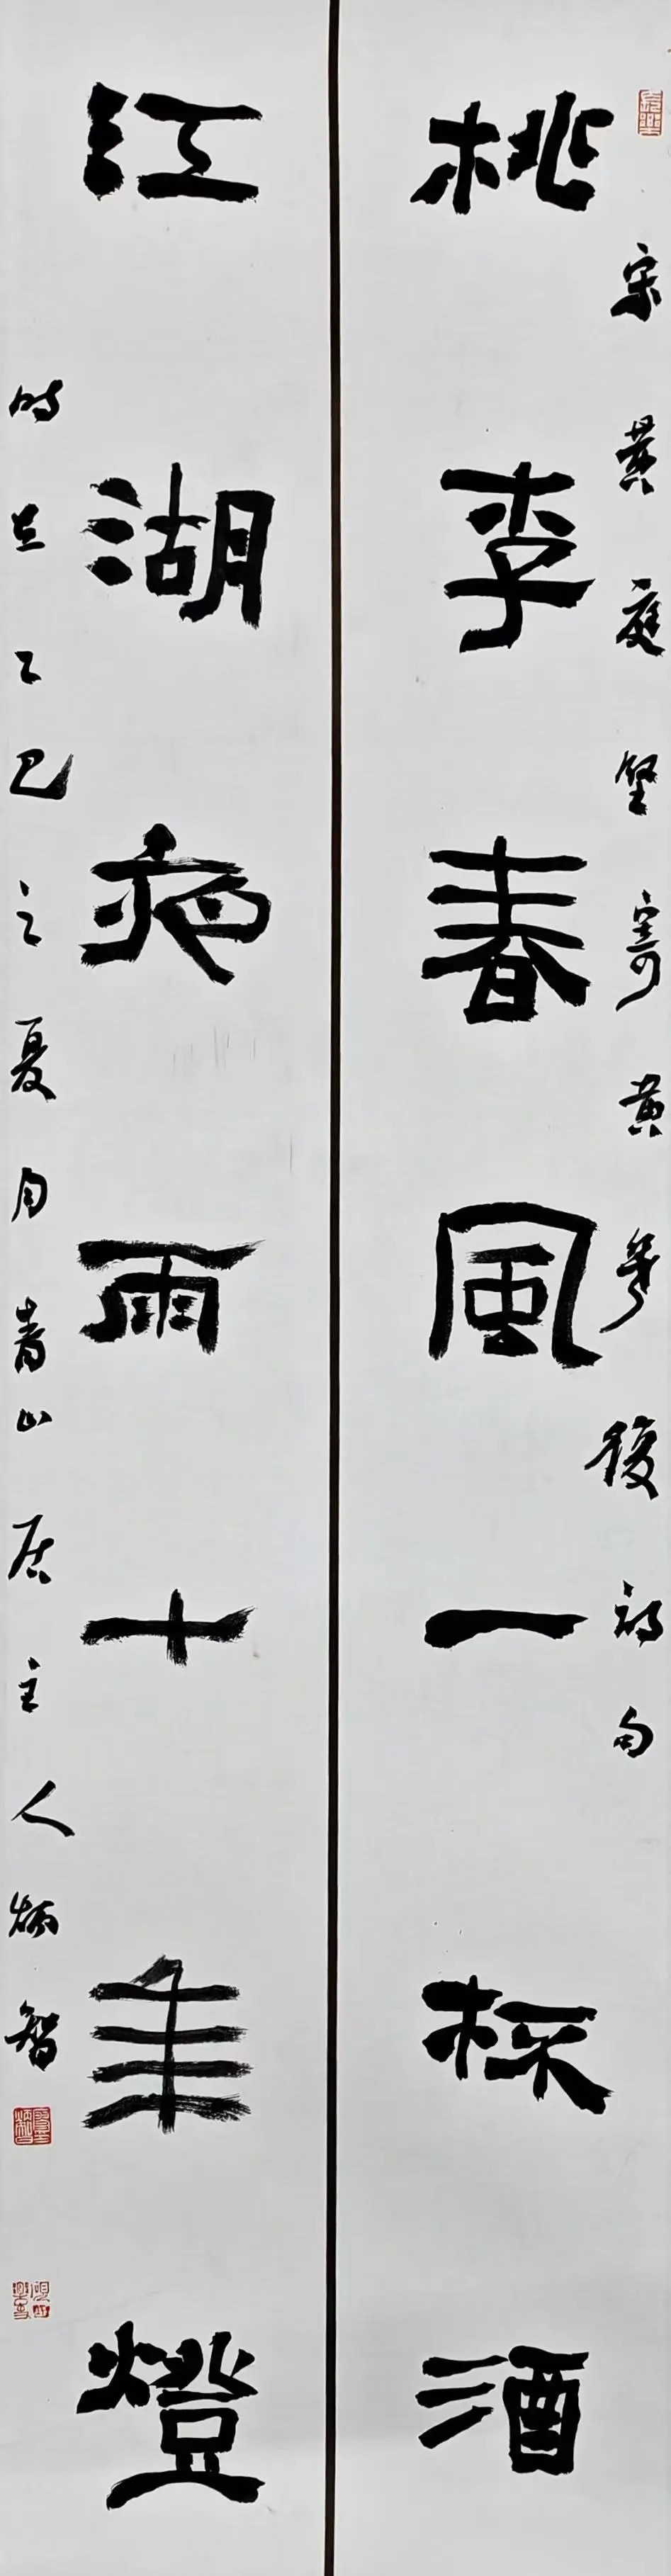 宋黄庭堅寄黄幾復詩句
桃李春風一杯酒
江湖夜雨十年燈
時在乙巳之夏月青山居主人炳智